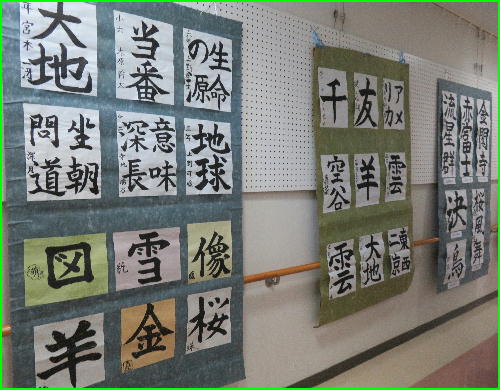 大地
当番
生命
の源
坐朝
問道
意味
深長
地球
図
雪
像
羊
金
桜
千
友
アメ
リカ
空谷
羊
雲
雲
大地
東西
二京
流星群
赤富士
金閣寺
決
桜風舞
鳥